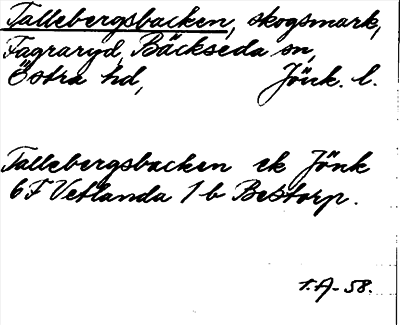 Tallebergsbacken, skogsmark,
Fagraryd, Bäckseda sn,
Östra hd, Jönk. l.
Tallebergsbacken ek Jönk
6F Vetlanda 1 b Bestorp.
T.A-58.